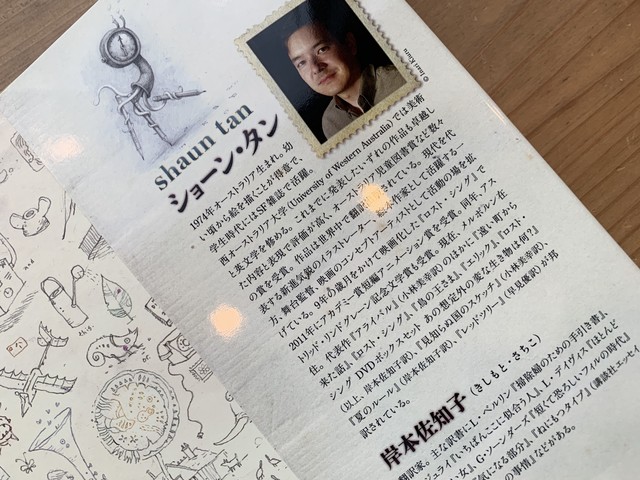 shaun tan
ショーン・タン
© Inari Kiuru
1974年オーストラリア生まれ。幼
い頃から絵を描くことが得意で、
学生時代にはSF雑誌で活躍。
西オーストラリア大学 (University of Western Australia) では美術
と英文学を修める。これまでに発表したいずれの作品も卓越し
た内容と表現で評価が高く、オーストラリア児童図書賞など数々
の賞を受賞。作品は世界中で翻訳出版されている。現代を代
表する新進気鋭のイラストレーター、絵本作家として活躍する一
方、舞台監督、映画のコンセプトアーティストとして活動の場を拡
げている。9年の歳月をかけて映画化した『ロスト・シング』で
2011年にアカデミー賞短編アニメーション賞を受賞。同年、アス
トリッド・リンドグレーン記念文学賞も受賞。現在、メルボルン在
住。代表作『アライバル』(小林美幸訳)のほかに『遠い町から
来た話』『ロスト・シング』『鳥の王さま』、『エリック』、『ロスト・
シング DVDボックスセット あの想定外の変な生き物は何?』
(以上、岸本佐知子訳)、『見知らぬ国のスケッチ』(小林美幸訳)、
『夏のルール』(岸本佐知子訳)、『レッドツリー』(早見優訳)が邦
訳されている。
岸本佐知子 (きしもと・さちこ)
翻訳家。主な訳書にL・ベルリン『掃除婦のための手引き書』、
ジュライ『いちばんここに似合う人』、L・デイヴィス『ほとんど
い女』、G・ソーンダーズ『短くて恐ろしいフィルの時代』
気になる部分』、『ねにもつタイプ』(講談社エッセイ
の事情』などがある。